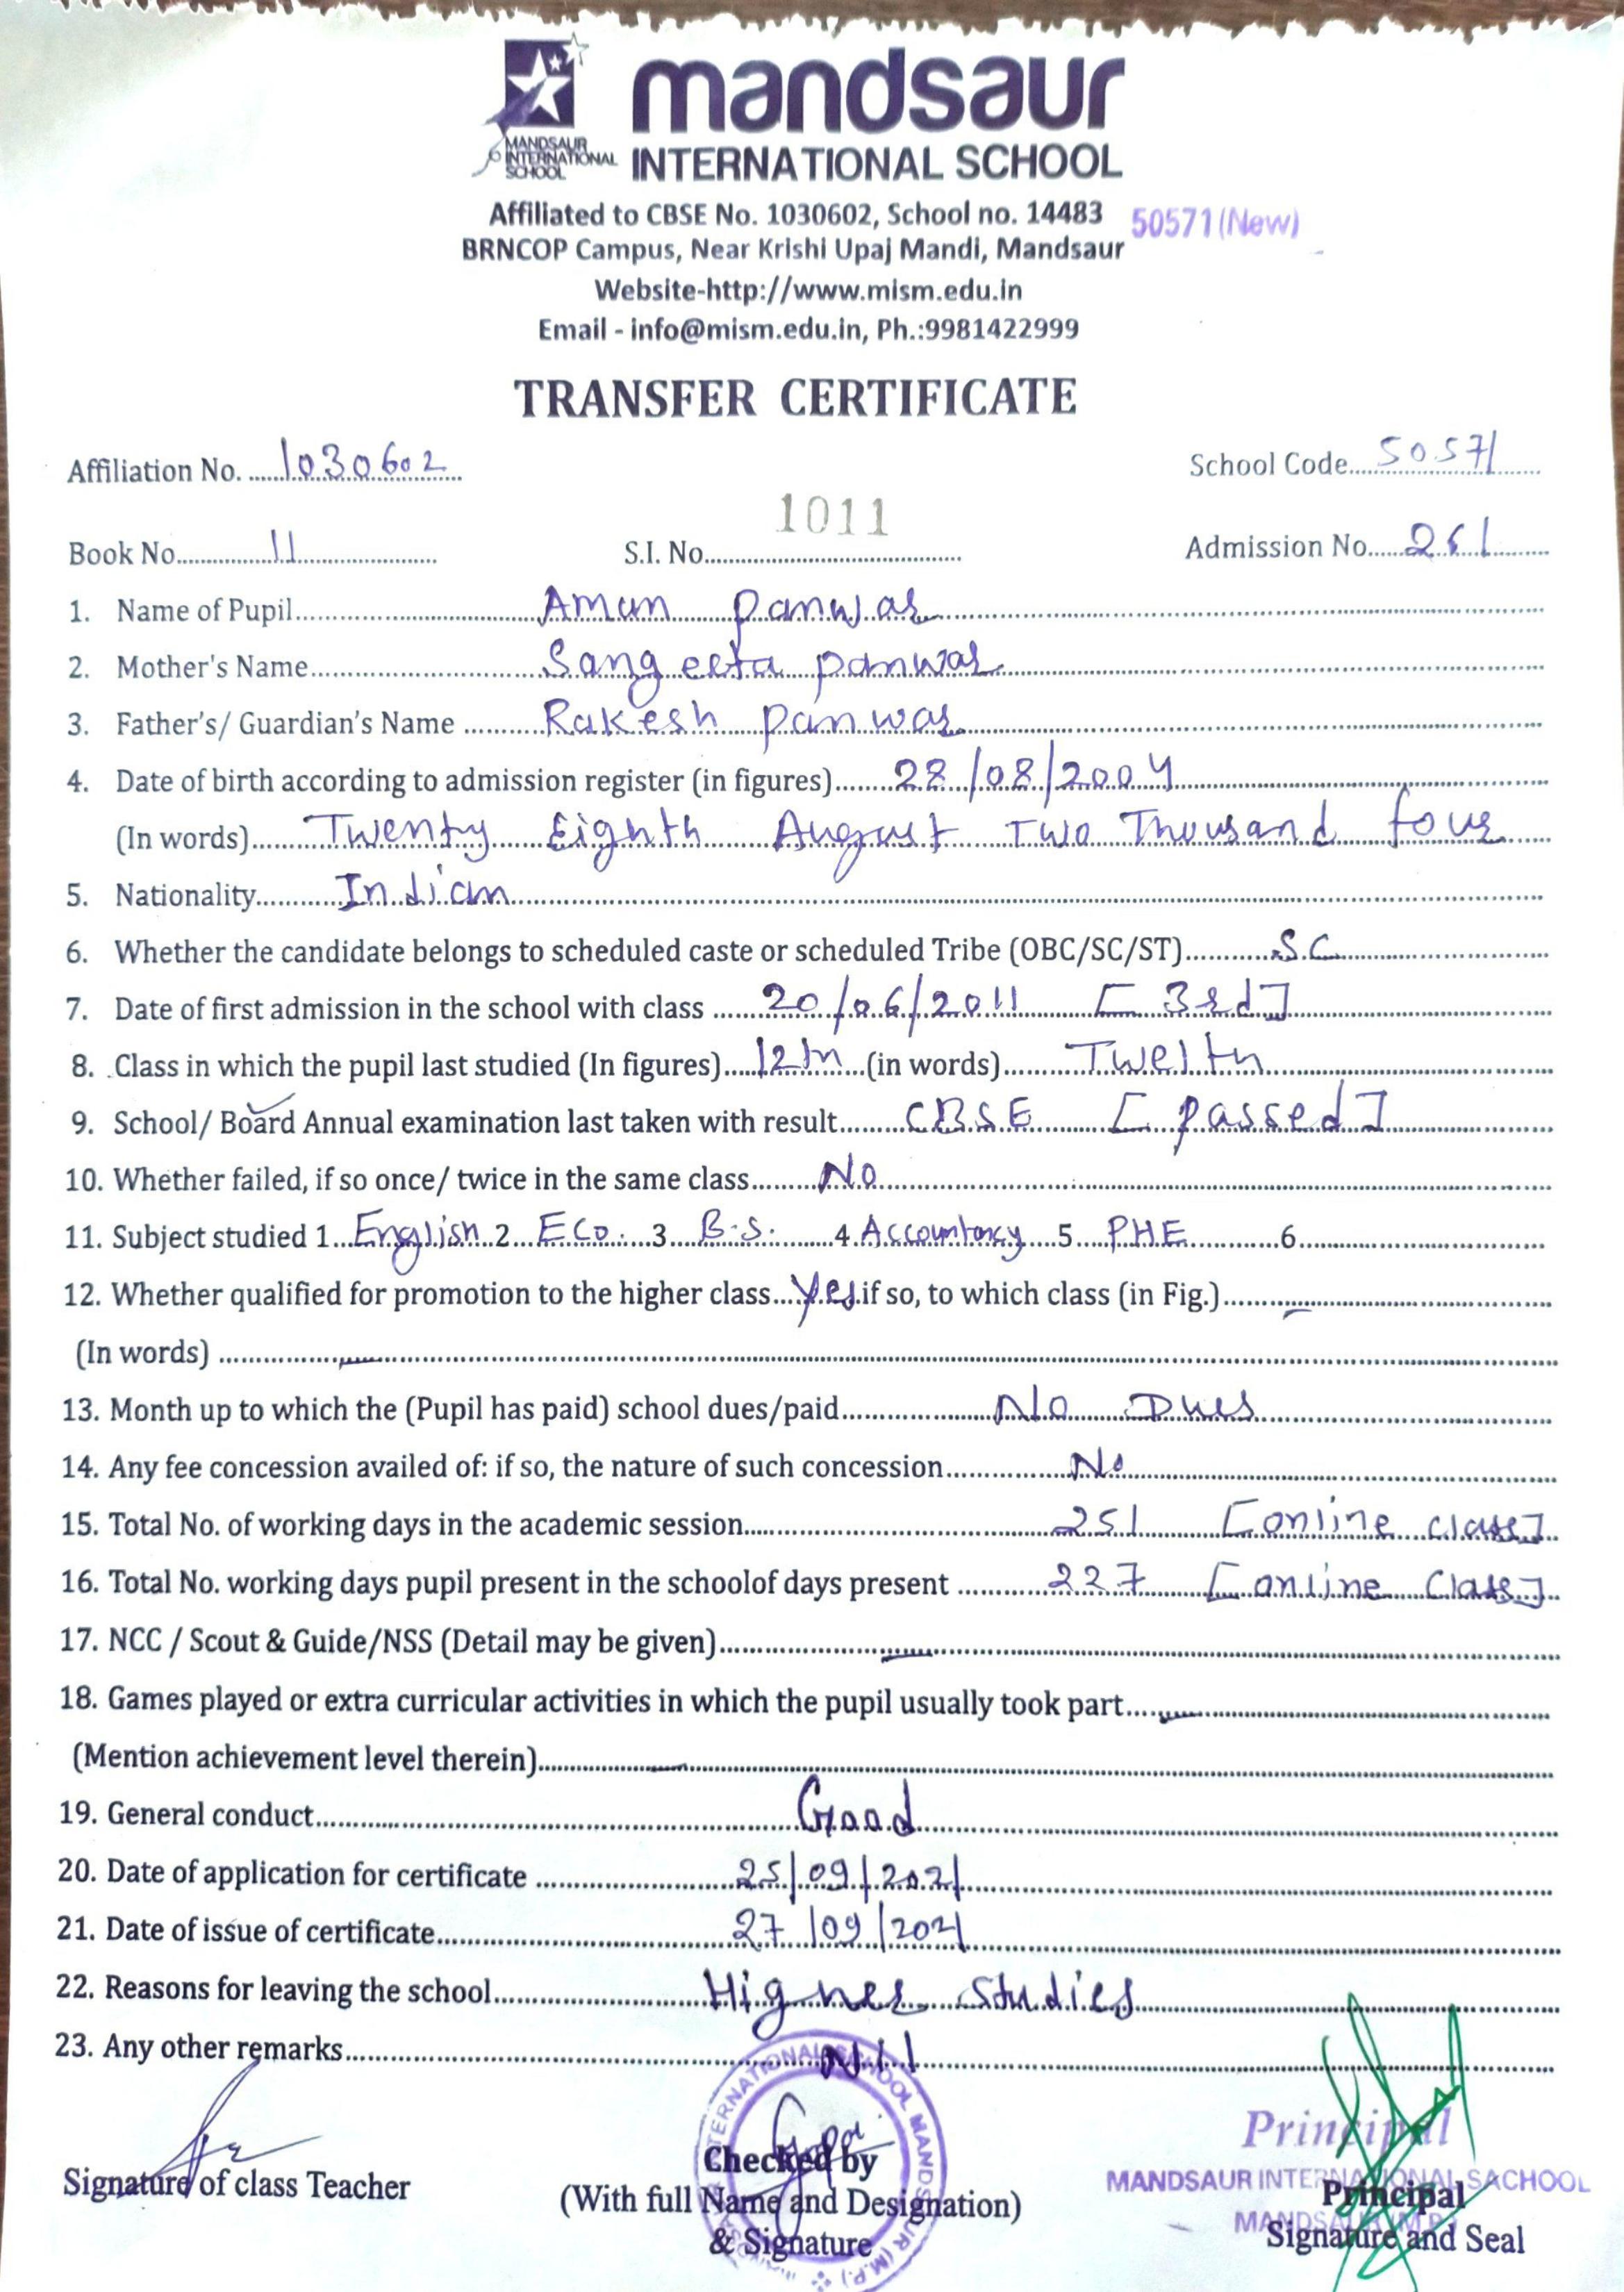 MANDSAUR
INTERNATIONAL
SCHOOL
mandsaur
INTERNATIONAL SCHOOL
Affiliated to CBSE No. 1030602, School no. 14483 50571(New)
BRNCOP Campus, Near Krishi Upaj Mandi, Mandsaur
Website-http://www.mism.edu.in
Email - info@mism.edu.in, Ph.:9981422999
TRANSFER CERTIFICATE
Affiliation No. 1030602 School Code 50571
Book No. 11 S.I. No. 1011 Admission No. 261
1. Name of Pupil Aman panwar
2. Mother's Name Sangeeta panwar
3. Father's/ Guardian's Name Rakesh panwar
4. Date of birth according to admission register (in figures) 28/08/2004
(In words) Twenty Eighth August Two Thousand four
5. Nationality Indian
6. Whether the candidate belongs to scheduled caste or scheduled Tribe (OBC/SC/ST) SC
7. Date of first admission in the school with class 20/06/2011 [3rd]
8. Class in which the pupil last studied (In figures) 12th (in words) Twelth
9. School/ Board Annual examination last taken with result CBSE [passed]
10. Whether failed, if so once/ twice in the same class No
11. Subject studied 1 English 2 Eco. 3 B.S. 4 Accountancy 5 PHE 6
12. Whether qualified for promotion to the higher class yes if so, to which class (in Fig.) —
(In words) —
13. Month up to which the (Pupil has paid) school dues/paid No Dues
14. Any fee concession availed of: if so, the nature of such concession No
15. Total No. of working days in the academic session 251 [online class]
16. Total No. working days pupil present in the schoolof days present 227 [online class]
17. NCC / Scout & Guide/NSS (Detail may be given) —
18. Games played or extra curricular activities in which the pupil usually took part —
(Mention achievement level therein) —
19. General conduct Good
20. Date of application for certificate 25/09/2021
21. Date of issue of certificate 27/09/2021
22. Reasons for leaving the school Higher Studies
23. Any other remarks Nil
Principal
MANDSAUR INTERNATIONAL SACHOOL
MANDSAUR (M.P.)
Signature of class Teacher
Checked by
(With full Name and Designation)
& Signature
INTERNATIONAL SCHOOL MANDSAUR (M.P.)
Principal
Signature and Seal